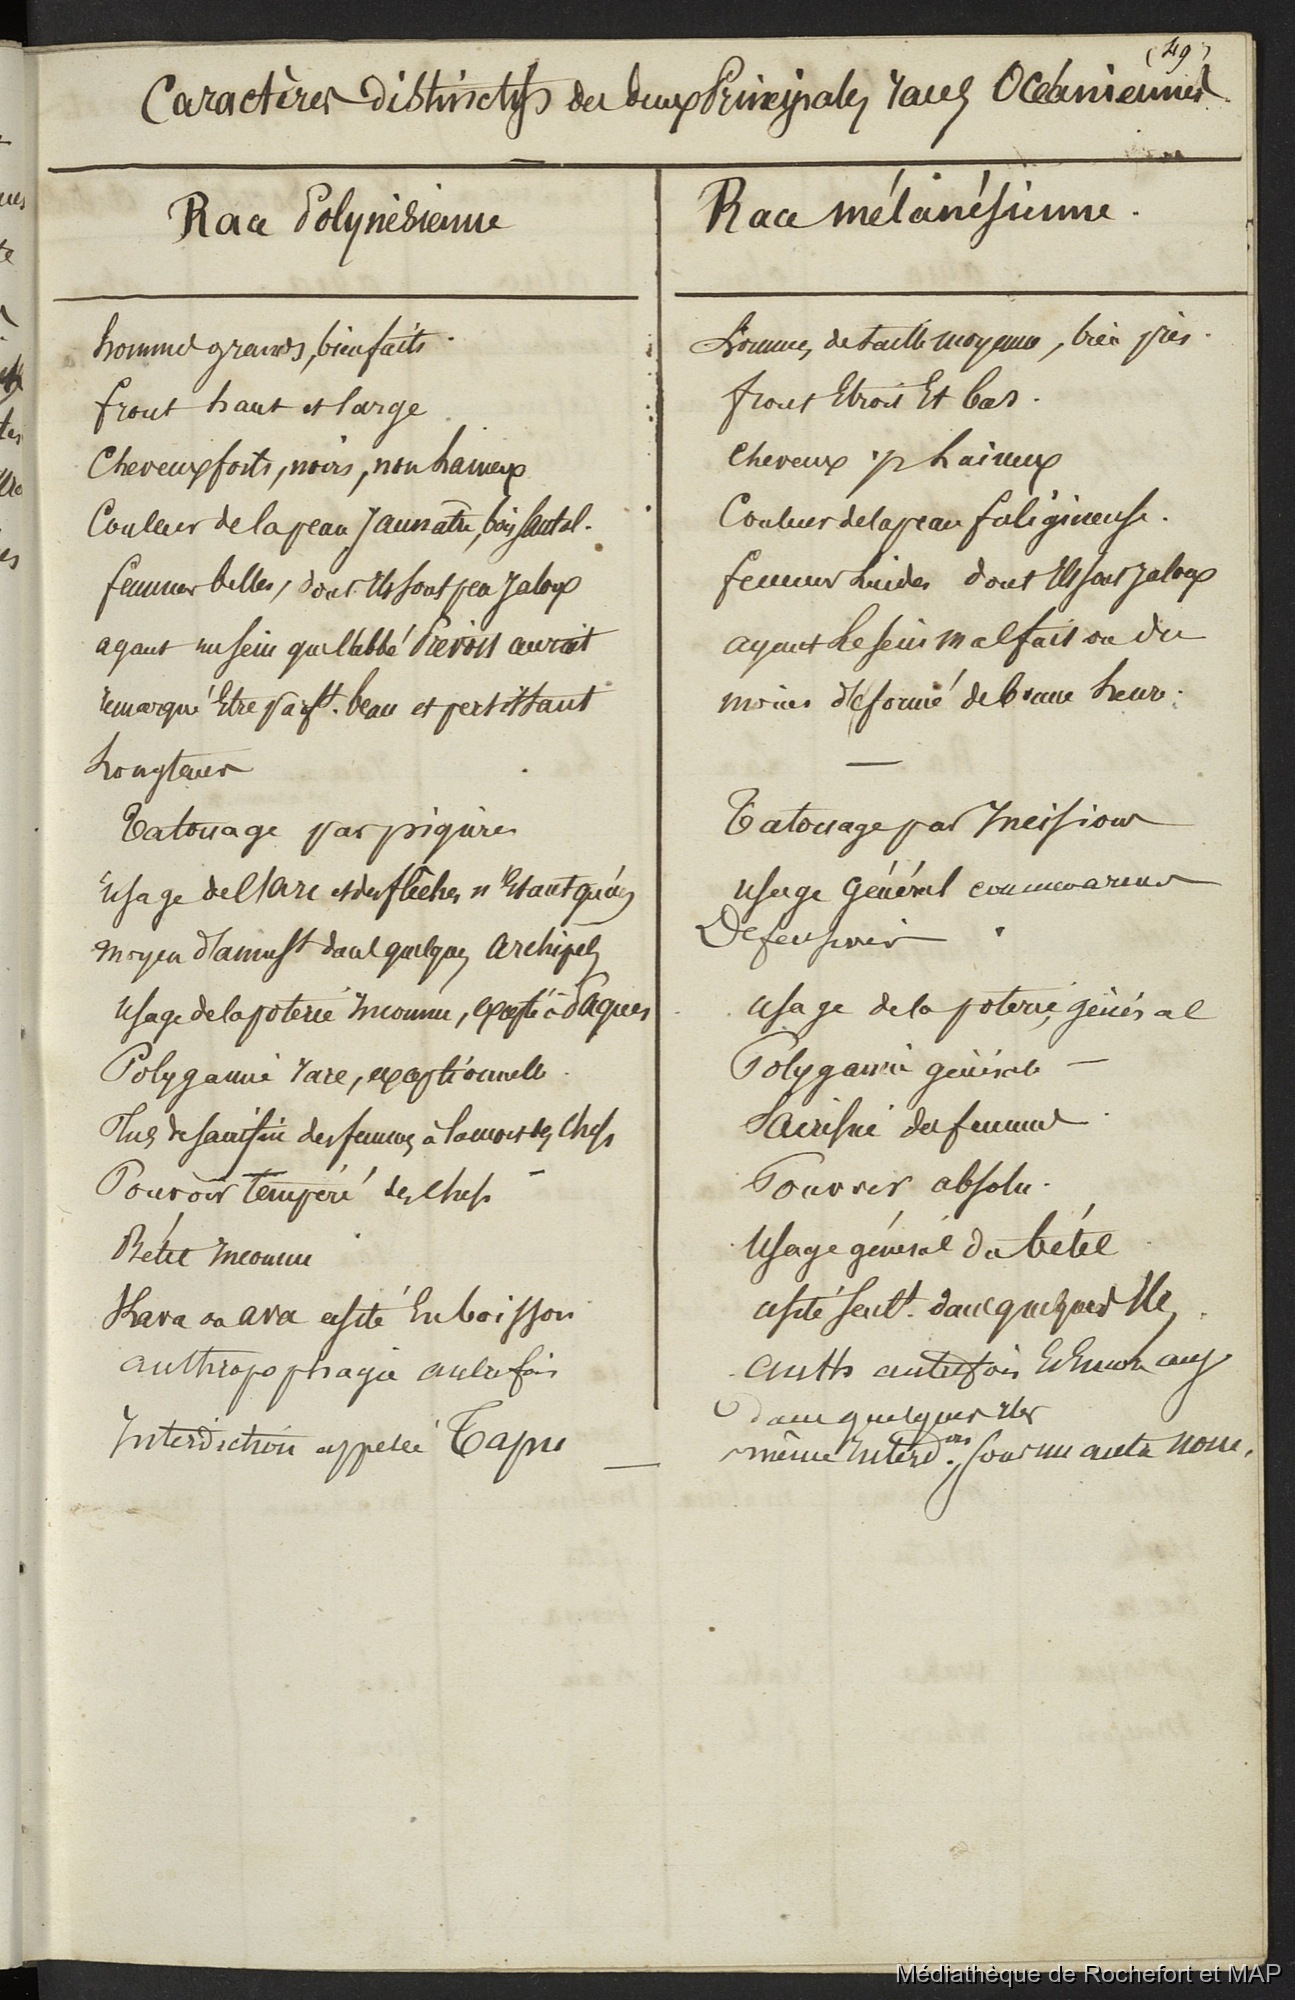 (49)
Caractères distinctifs des deux Principales races Océaniennes
Race Polynésienne
hommes grands, bien faits.
front haut et large
Cheveux forts, noirs, non laineux
Couleur de la peau jaunatre, bois santal.
femmes belles, dont ils sont peu jaloux
ayant un sein que l'abbé Prévost aurait
remarqué Etre parft. beau et persistant
Longtems
Tatouage par piqures
Usage de l'arc et des flêches n'Etant qu'un
moyen d'amust dans quelques archipels
Usage de la poterie Inconnu, excepté à Pâques
Polygamie rare, exceptionnelle.
Plus de sacrifice des femmes à la mort des Chefs
Pouvoir tempéré des chefs
Bétel Inconnu
Kava ou ava usité En boisson
anthropophagie autrefois
Interdiction appelée Tapu
Race mélanésienne.
hommes de taille moyenne, bien pris.
front Etroit Et bas.
Cheveux laineux
Couleur de la peau fuligineuse.
femmes laides dont ils sont jaloux
ayant le sein mal fait ou du
moins déformé de bonne heure.
—
Tatouage par Incision
Usage Général comme armes
Défensives
Usage de la poterie, général
Polygamie générale —
Sacrifice des femmes
Pouvoir absolu.
Usage général du bétel
usité seult. dans quelques Iles.
anth autrefois Et Encore auj
dans quelques Iles
même Interdon. sous un autre nom.
Médiathèque de Rochefort et MAP